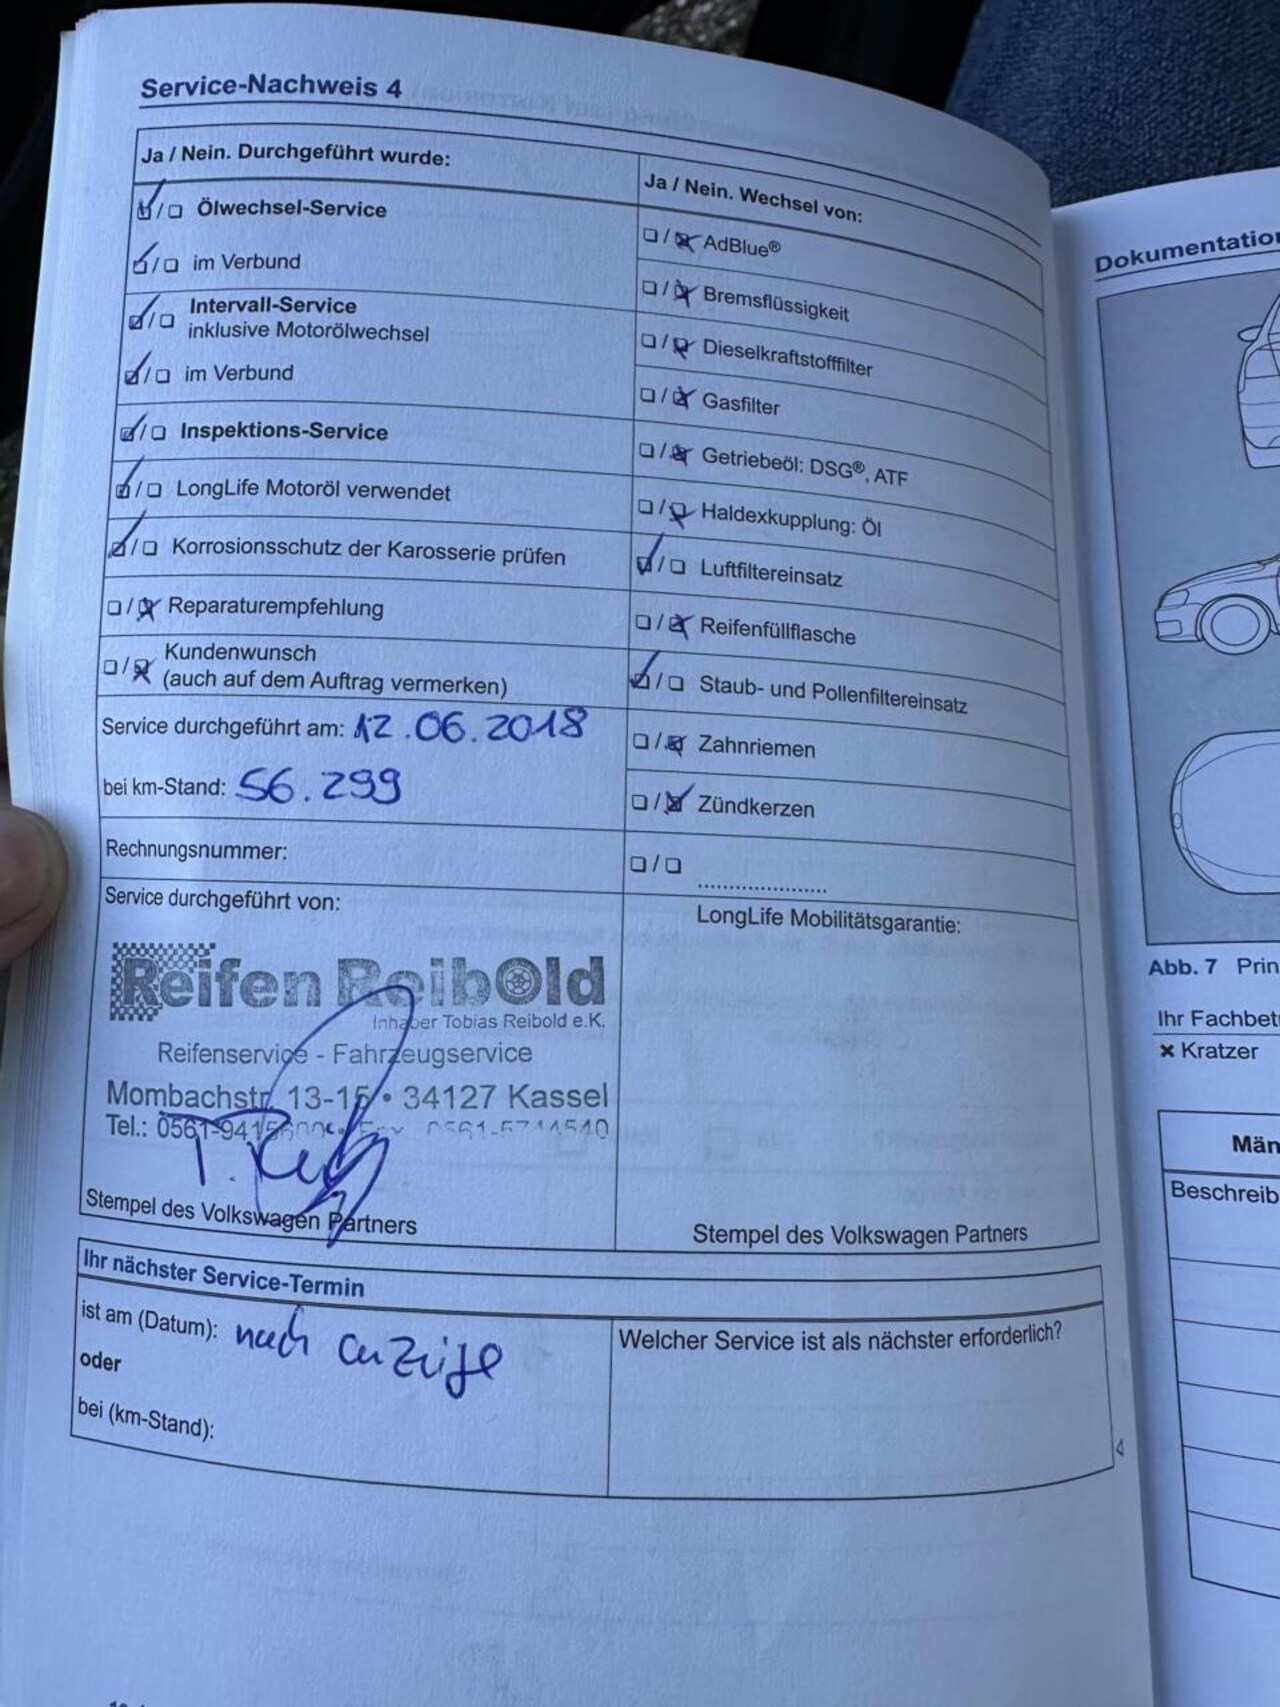 Service-Nachweis 4
Ja / Nein. Durchgeführt wurde:
☑/☐ Ölwechsel-Service
☑/☐ im Verbund
☑/☐ Intervall-Service
inklusive Motorölwechsel
☑/☐ im Verbund
☑/☐ Inspektions-Service
☑/☐ LongLife Motoröl verwendet
☑/☐ Korrosionsschutz der Karosserie prüfen
☐/☒ Reparaturempfehlung
☐/☒ Kundenwunsch
(auch auf dem Auftrag vermerken)
Service durchgeführt am: 12.06.2018
bei km-Stand: 56.299
Rechnungsnummer:
Service durchgeführt von:
Reifen Reibold
Inhaber Tobias Reibold e.K.
Reifenservice - Fahrzeugservice
Mombachstr. 13-15 • 34127 Kassel
Tel.: 0561-9415600 • Fax 0561-5744540
Stempel des Volkswagen Partners
Ja / Nein. Wechsel von:
☐/☒ AdBlue®
☐/☒ Bremsflüssigkeit
☐/☒ Dieselkraftstofffilter
☐/☒ Gasfilter
☐/☒ Getriebeöl: DSG®, ATF
☐/☒ Haldexkupplung: Öl
☑/☐ Luftfiltereinsatz
☐/☒ Reifenfüllflasche
☑/☐ Staub- und Pollenfiltereinsatz
☐/☒ Zahnriemen
☐/☒ Zündkerzen
☐/☐ .....................
LongLife Mobilitätsgarantie:
Stempel des Volkswagen Partners
Ihr nächster Service-Termin
ist am (Datum): nach anzeige
oder
bei (km-Stand):
Welcher Service ist als nächster erforderlich?
Dokumentation
Abb. 7 Prin
Ihr Fachbet
× Kratzer
Män
Beschreib